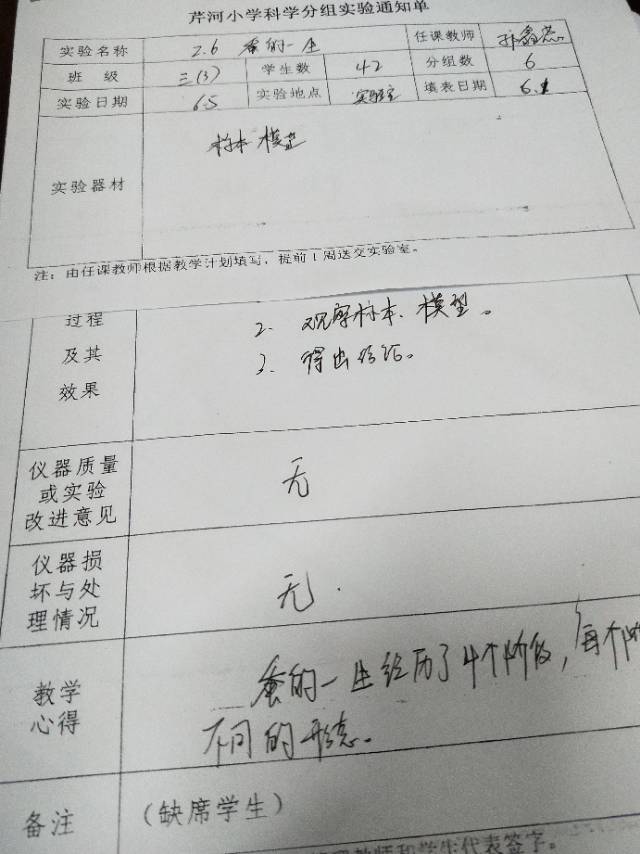 芹河小学科学分组实验通知单
实验名称 2.6 蚕的一生 任课教师
班 级 三(3) 学生数 42 分组数 6
实验日期 6.5 实验地点 实验室 填表日期 6.1
实验器材 标本 模型
注：由任课教师根据教学计划填写，提前1周送交实验室。
过程
及其
效果
2. 观察标本、模型。
3. 得出结论。
仪器质量
或实验
改进意见
无
仪器损
坏与处
理情况
无.
教学
心得
蚕的一生经历了4个阶段，每个阶
不同的形态。
备注 (缺席学生)
教师和学生代表签字。